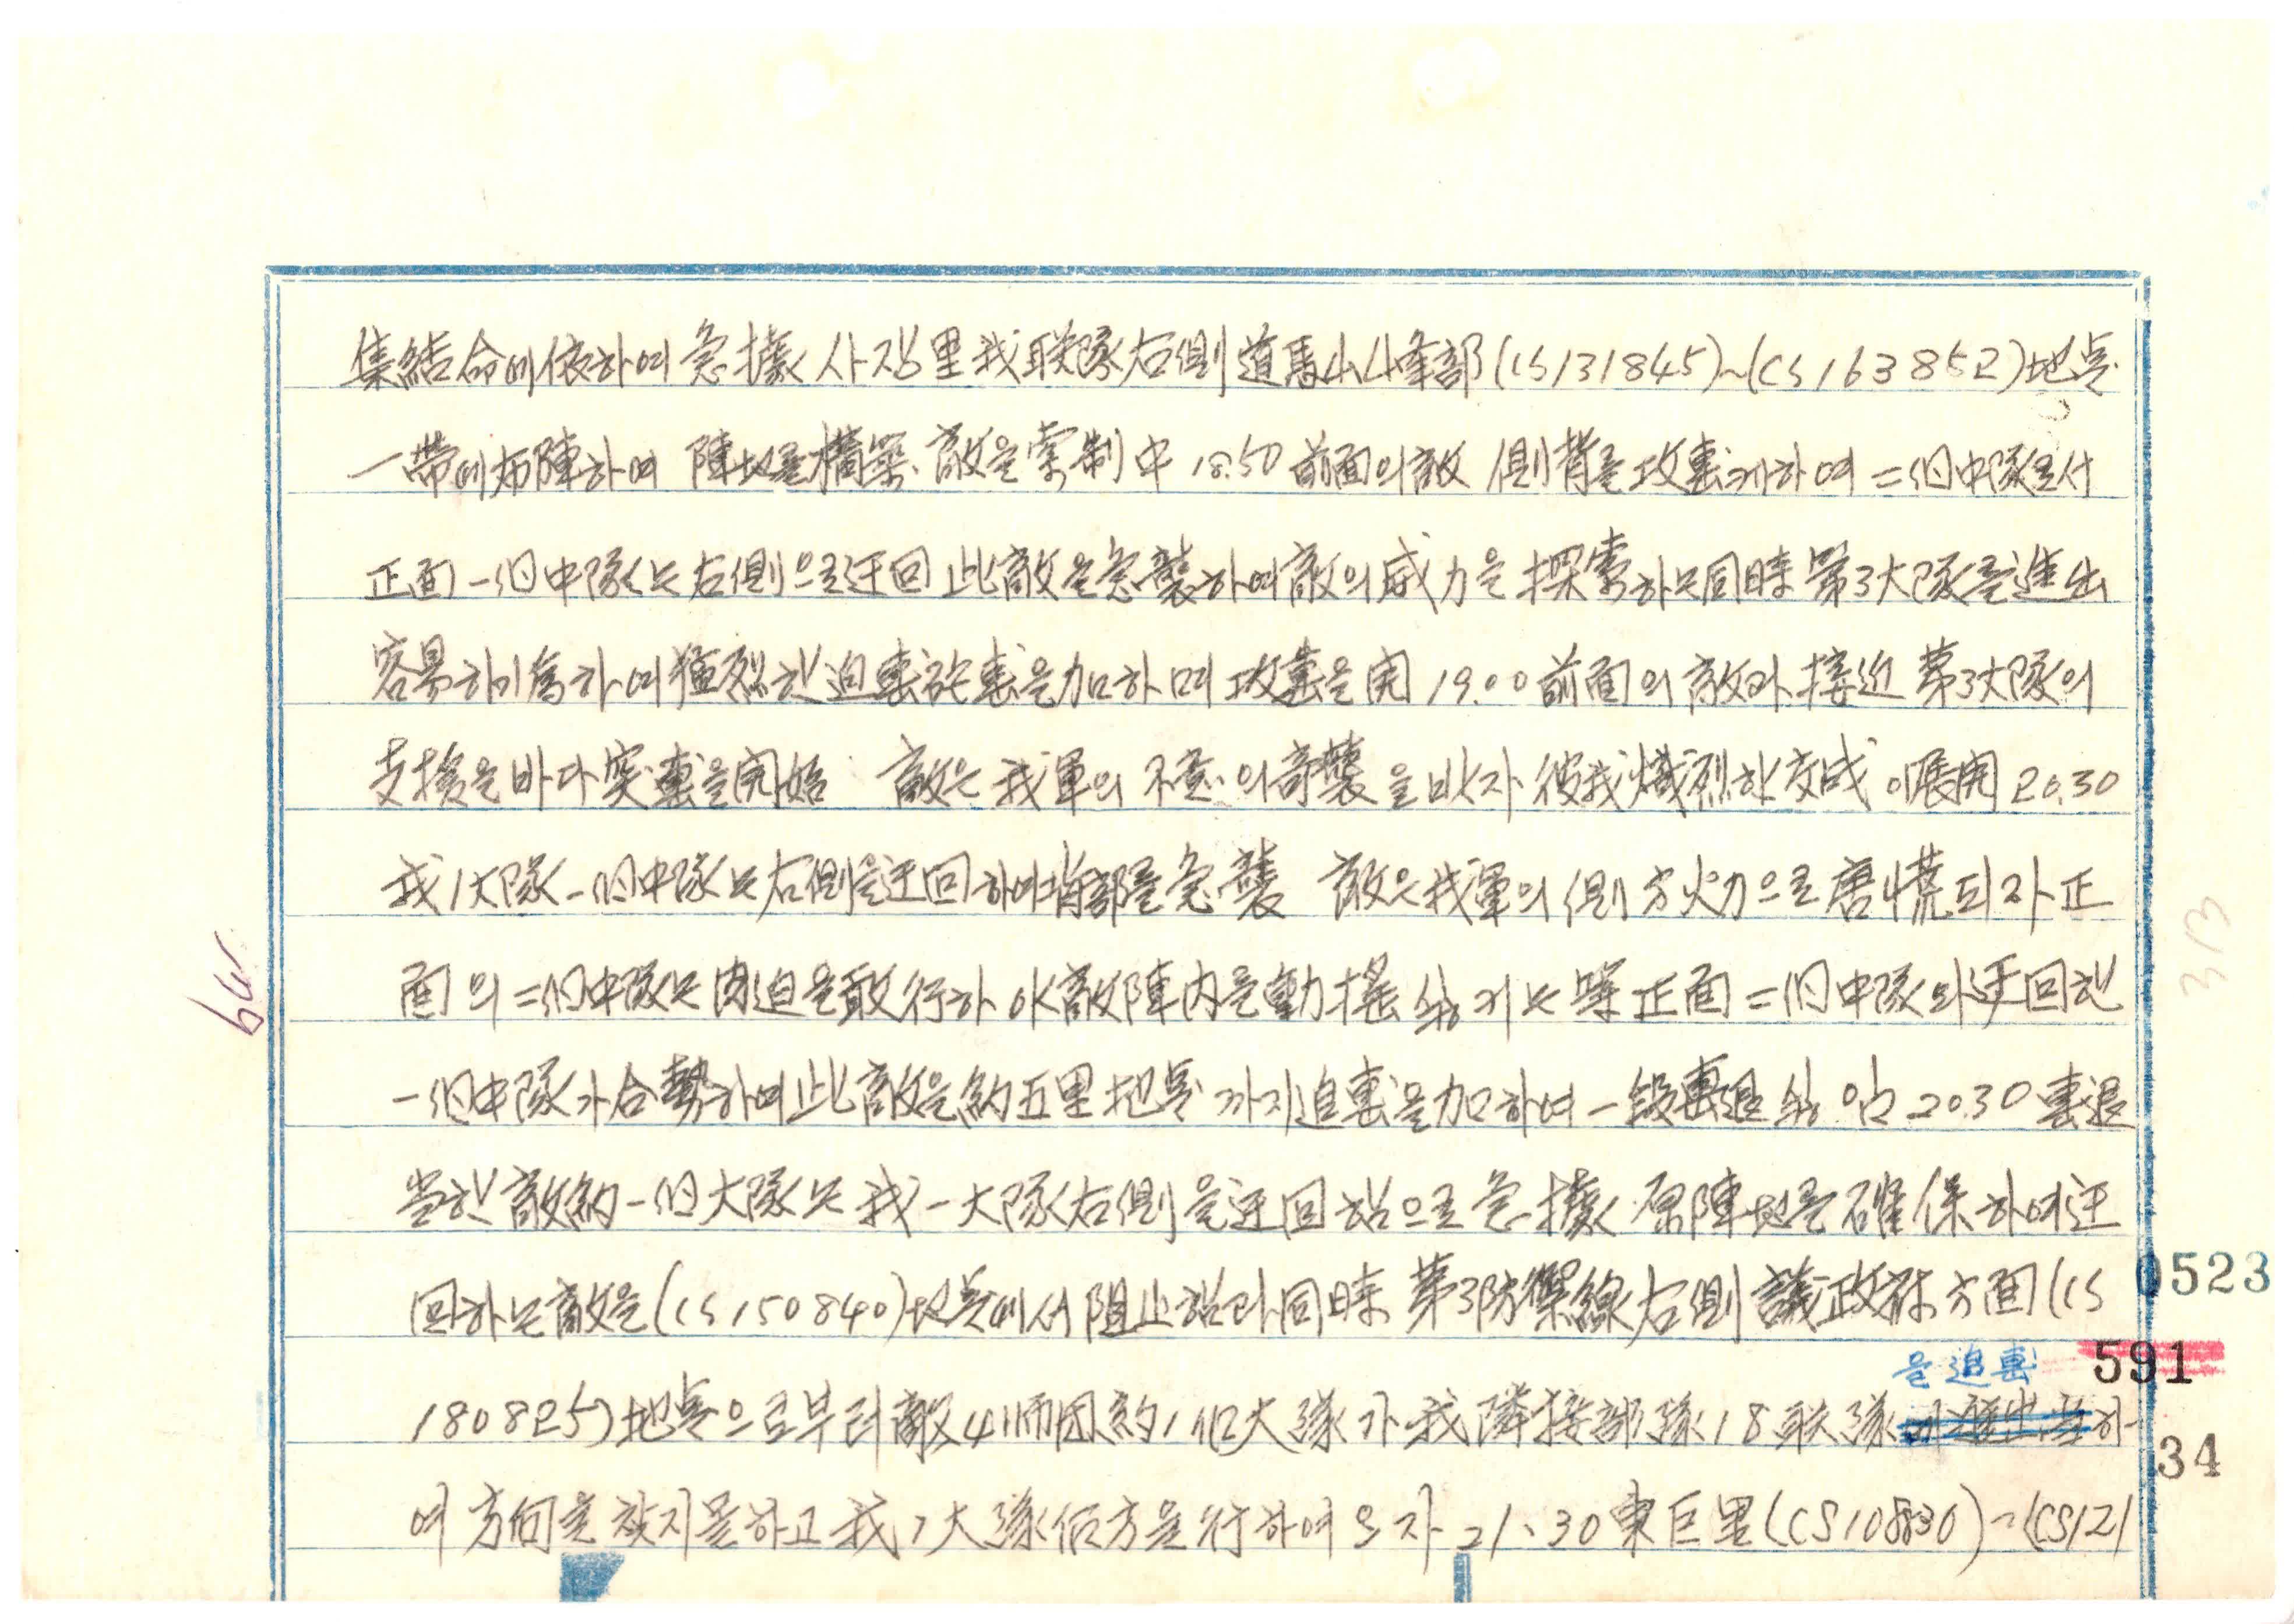 集結命에依하여 急據 사창里 我聯隊右側 道馬山峰部(CS131845)~(CS163852)地点
一帶에布陣하여 陣地를構築. 敵을牽制中 18.50 前面의敵 側背를攻擊케하여 二個中隊를付
正面 一個中隊는右側으로迂回 此敵을急襲하여敵의威力을探索하는同時 第3大隊를進出
容易하기爲하여猛烈한迫擊砲擊을加하며 攻擊을開 19.00 前面의敵과接近 第3大隊의
支援을바다突擊을開始 敵은我軍의 不意의奇襲을받자 彼我熾烈한交戰이展開 20.30
我1大隊一個中隊는右側을迂回하여背部를急襲 敵은我軍의側方火力으로唐慌되자正
面의二個中隊는肉迫을敢行하야敵陣內를動搖 식기는等正面二個中隊와迂回한
一個中隊가合勢하여此敵을約五里地点까지追擊을加하여一段擊退식혔음 20.30 擊退
當한敵約一個大隊는我一大隊右側을迂回함으로急據 原陣地를確保하여迂
回하는敵을(CS150840)地点에서阻止함과同時 第3防禦線右側 議政府方面(CS
180825)地点으로부터敵4師団約1個大隊가我隣接部隊18聯隊을追擊하
여 方向을찾지못하고我1大隊后方을行하여오자 21.30 東巨里(CS108830)~(CS121
0523
591
34
313